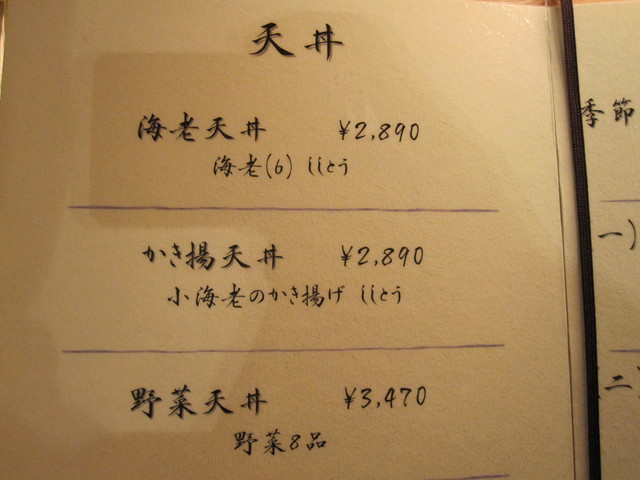 天丼
海老天丼 ¥2,890
海老(6) ししとう
かき揚天丼 ¥2,890
小海老のかき揚げ ししとう
野菜天丼 ¥3,470
野菜8品
季節
(一)
(二)